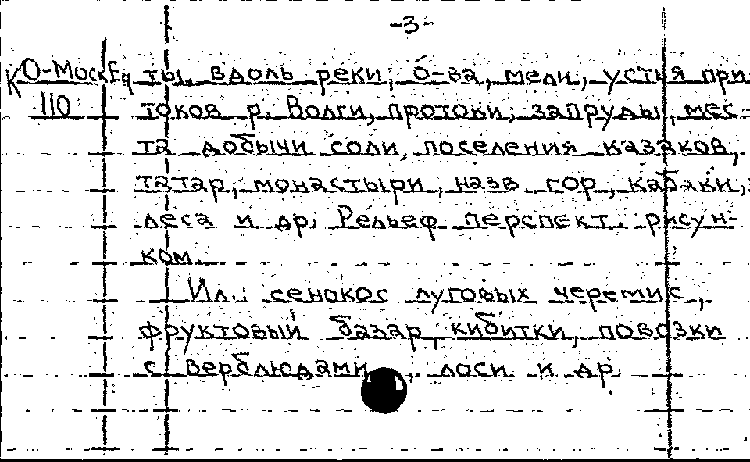 -3-
КО-Москва ты, вдоль реки, о-ва, мели, устья при-
110 токов р. Волги, протоки, запруды, мес-
та добычи соли, поселения казаков,
татар, монастыри, назв. гор, кабаки,
леса и др. Рельеф перспект. рисун-
ком.
Ил.: сенокос луговых черемис,
фруктовый базар, кибитки, повозки
с верблюдами, лоси и др.